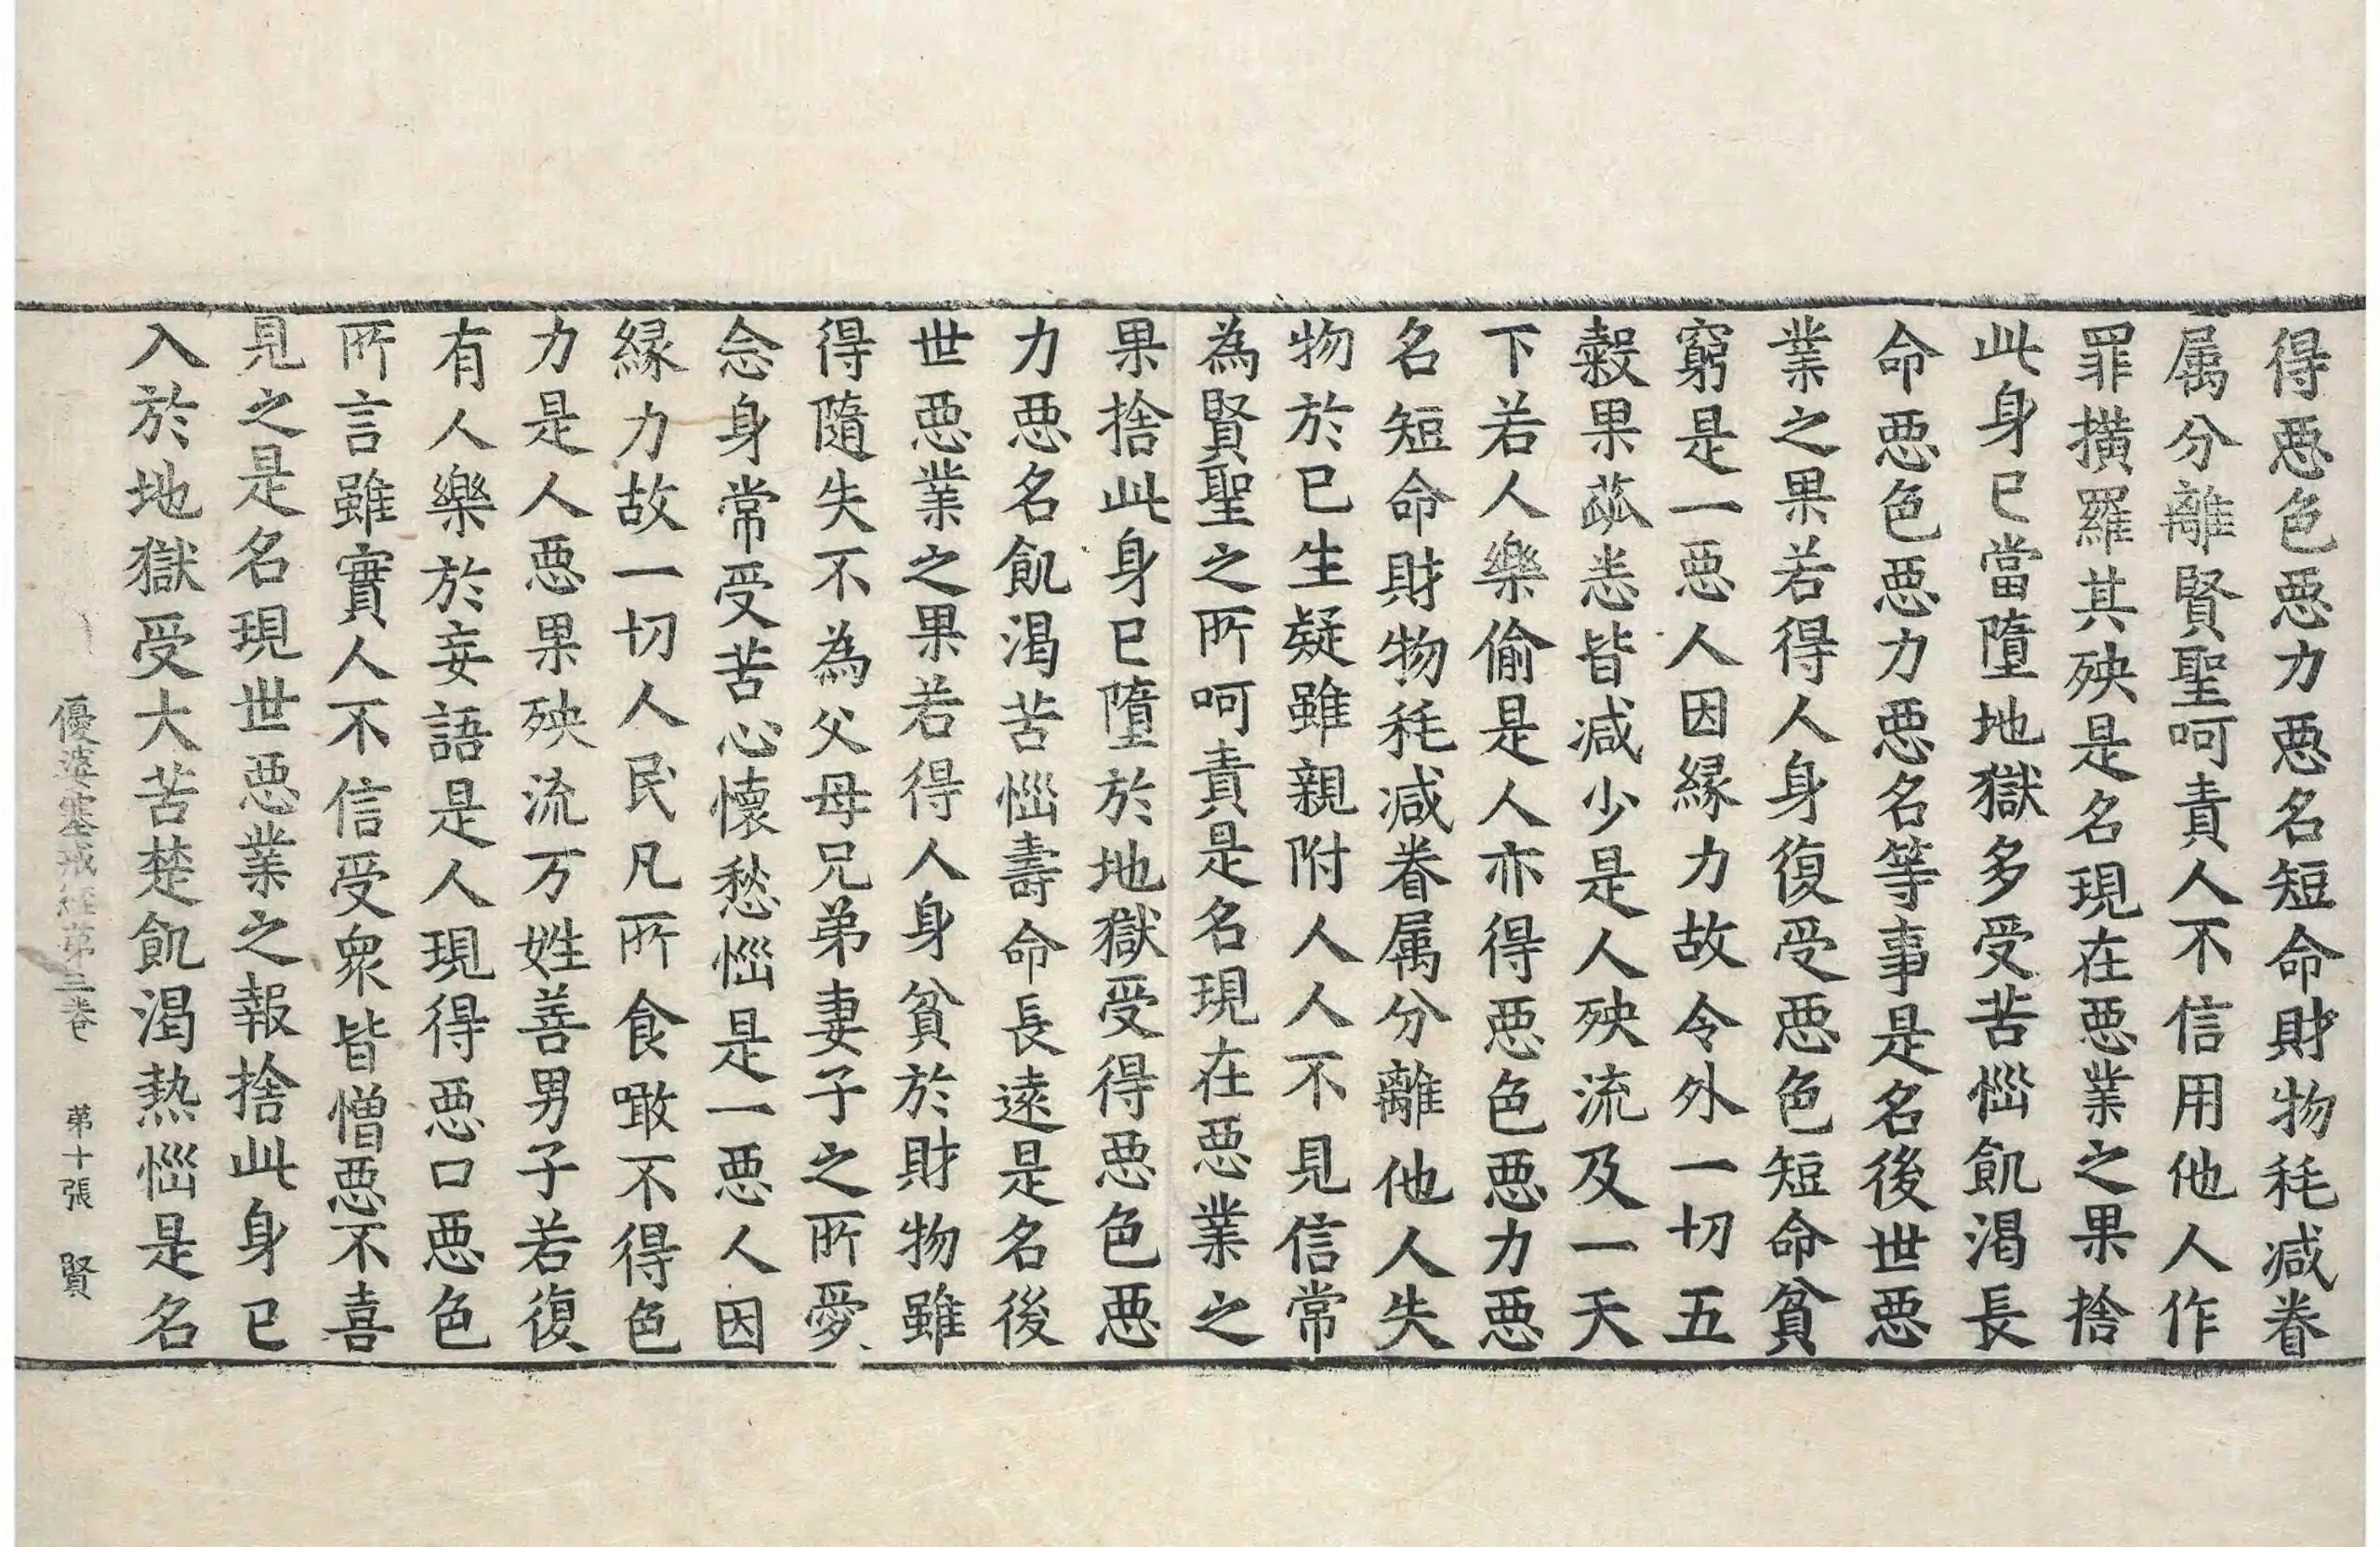 得悪色悪力悪名短命財物秏減眷
属分離賢聖呵責人不信用他人作
罪撗羅其殃是名現在悪業之果捨
此身已當墮地獄多受苦惱飢渴長
命悪色悪力悪名等事是名後世悪
業之果若得人身復受悪色短命貧
窮是一悪人因縁力故令外一切五
穀果蓏悉皆減少是人殃流及一天
下若人樂偷是人亦得悪色悪力悪
名短命財物秏減眷属分離他人失
物於已生疑雖親附人人不見信常
為賢聖之所呵責是名現在悪業之
果捨此身已墮於地獄受得悪色悪
力悪名飢渴苦惱壽命長遠是名後
世悪業之果若得人身貧於財物雖
得隨失不為父母兄弟妻子之所愛
念身常受苦心懷愁惱是一悪人因
縁力故一切人民凡所食噉不得色
力是人悪果殃流万姓善男子若復
有人樂於妄語是人現得悪口悪色
所言雖實人不信受衆皆憎悪不喜
見之是名現世悪業之報捨此身已
入於地獄受大苦楚飢渴熱惱是名
優婆塞戒経苐三卷 苐十張 賢